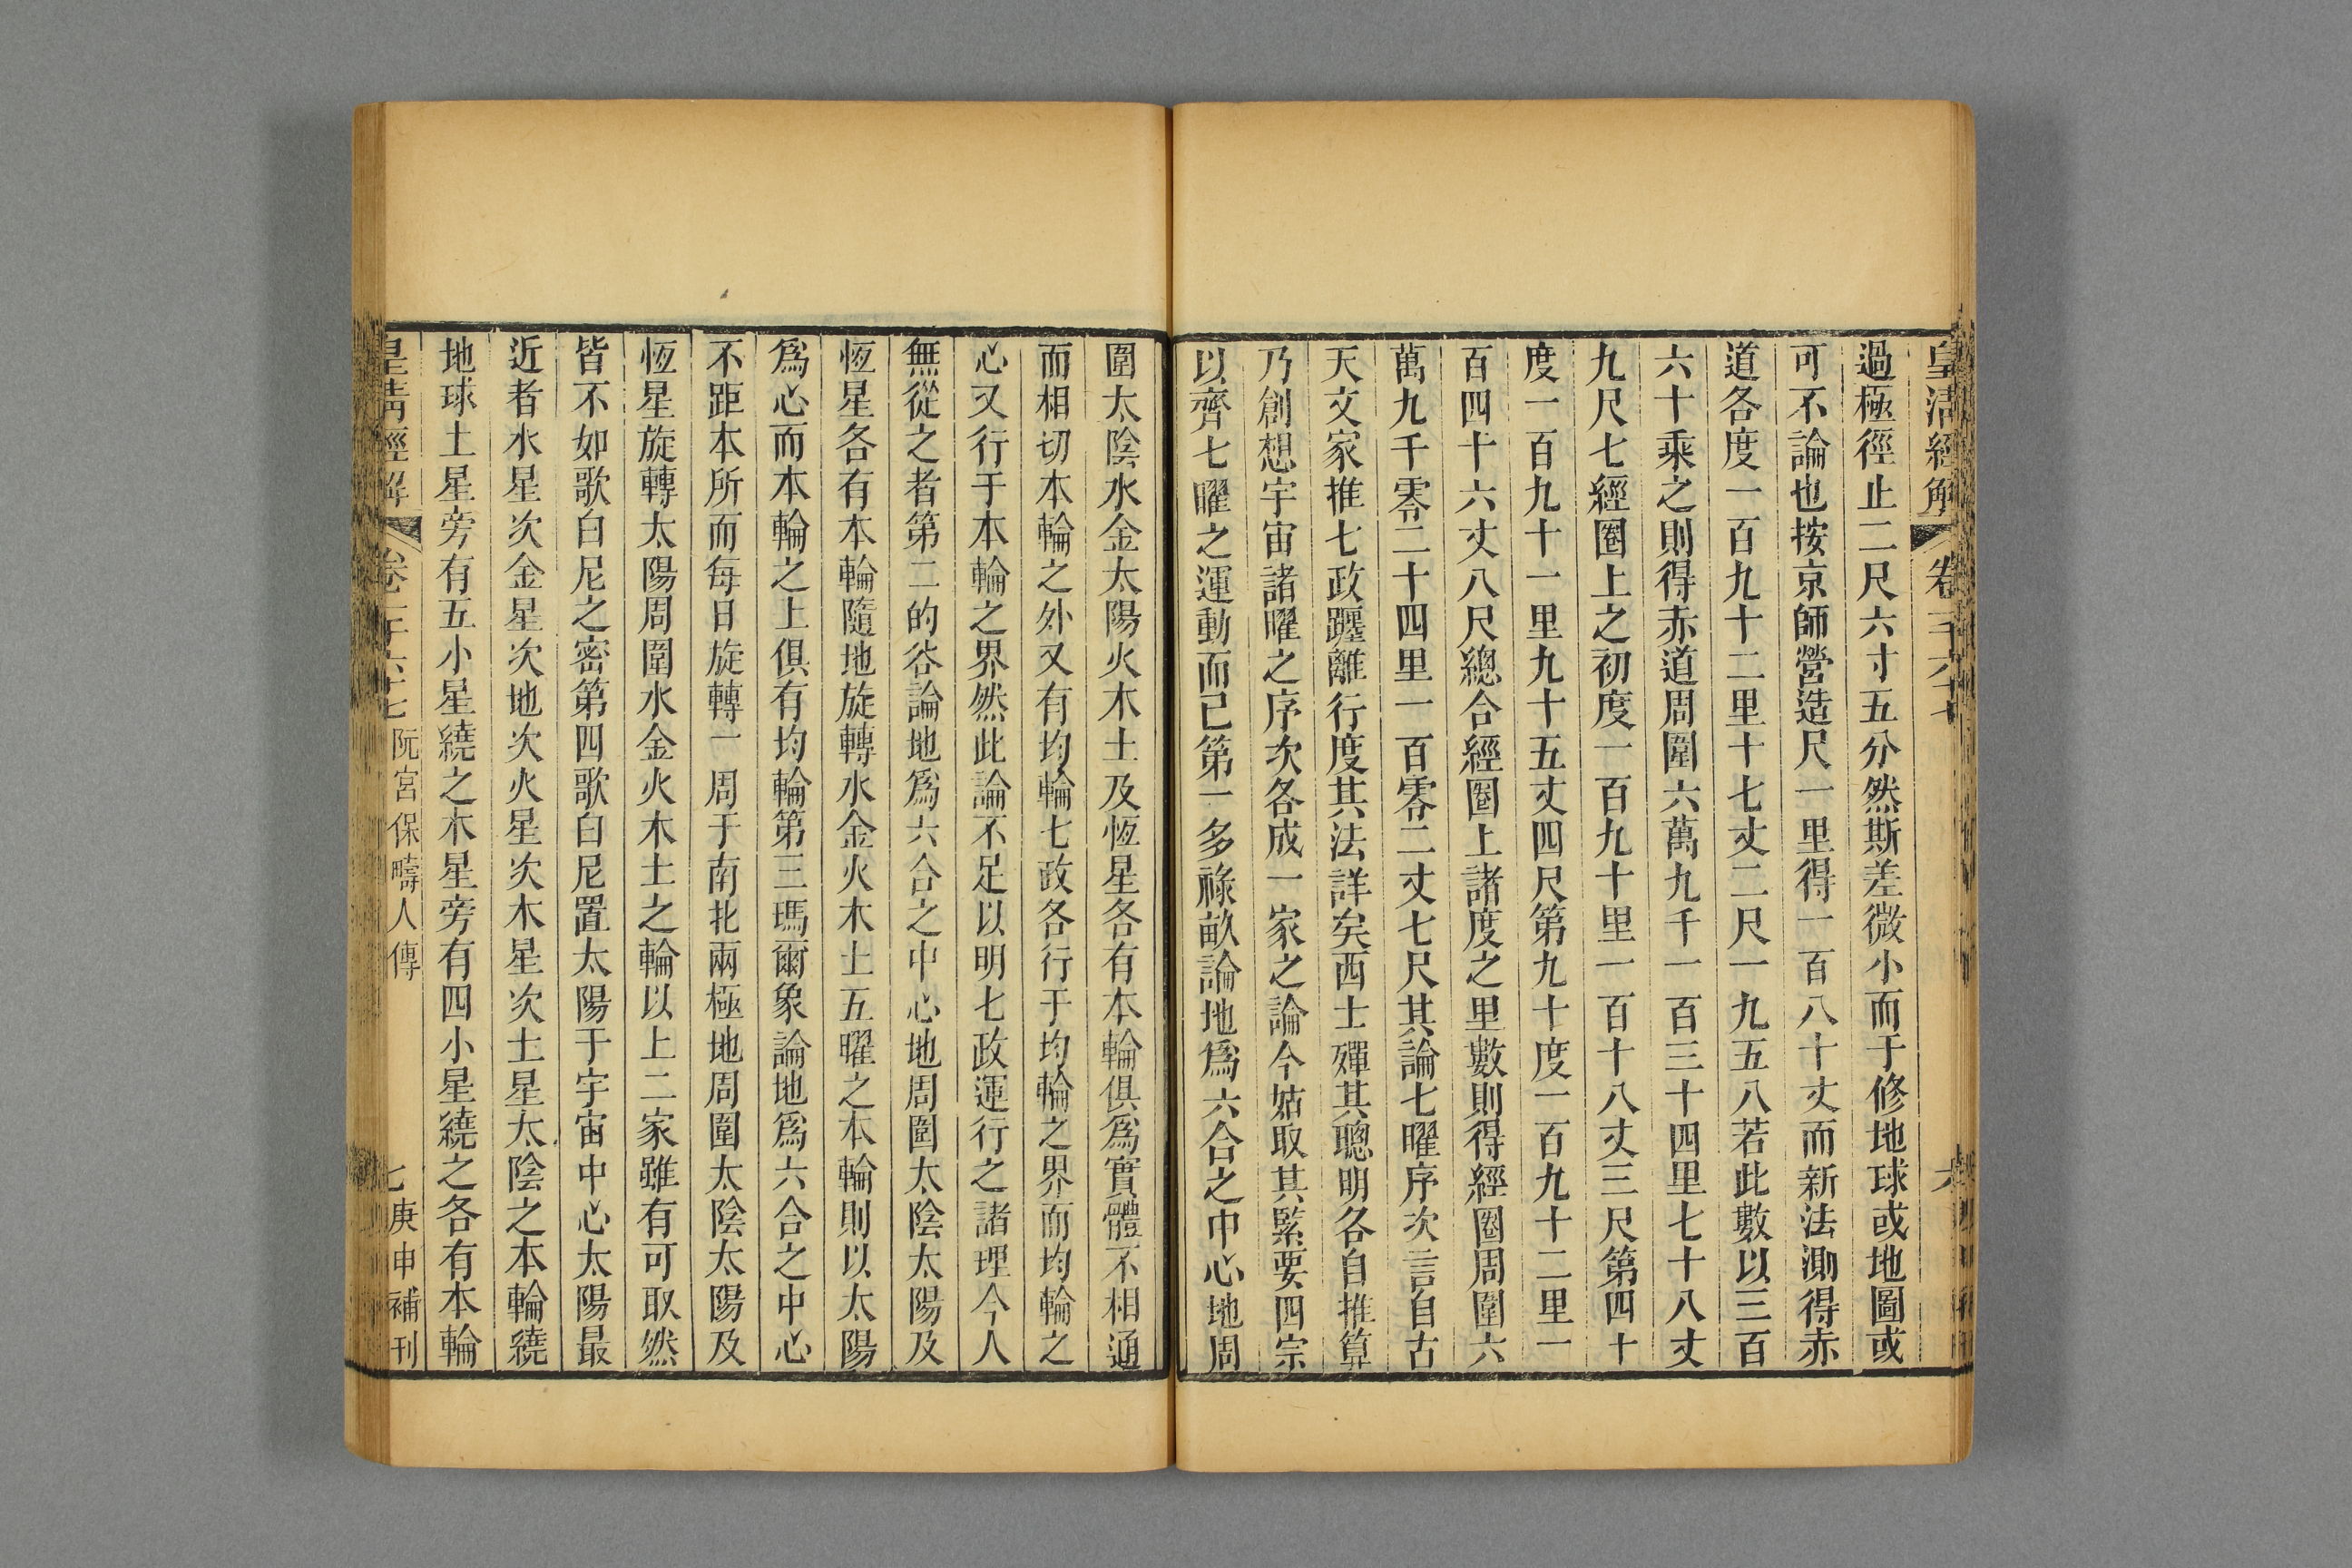 皇清經解 卷一千六十七 六
過極徑止二尺六寸五分然斯差微小而于修地球或地圖或
可不論也按京師營造尺一里得一百八十丈而新法測得赤
道各度一百九十二里十七丈二尺一九五八若此數以三百
六十乘之則得赤道周圍六萬九千一百三十四里七十八丈
九尺七經圈上之初度一百九十里一百十八丈三尺第四十
度一百九十一里九十五丈四尺第九十度一百九十二里一
百四十六丈八尺總合經圈上諸度之里數則得經圈周圍六
萬九千零二十四里一百零二丈七尺其論七曜序次言自古
天文家推七政躔離行度其法詳矣西士殫其聰明各自推算
乃創想宇宙諸曜之序次各成一家之論今姑取其緊要四宗
以齊七曜之運動而已第一多祿畝論地爲六合之中心地周
圍太陰水金太陽火木土及恆星各有本輪俱爲實體不相通
而相切本輪之外又有均輪七政各行于均輪之界而均輪之
心又行于本輪之界然此論不足以明七政運行之諸理今人
無從之者第二的谷論地爲六合之中心地周圍太陰太陽及
恆星各有本輪隨地旋轉水金火木土五曜之本輪則以太陽
爲心而本輪之上俱有均輪第三瑪爾象論地爲六合之中心
不距本所而每日旋轉一周于南北兩極地周圍太陰太陽及
恆星旋轉太陽周圍水金火木土之輪以上二家雖有可取然
皆不如歌白尼之密第四歌白尼置太陽于宇宙中心太陽最
近者水星次金星次地次火星次木星次土星太陰之本輪繞
地球土星旁有五小星繞之木星旁有四小星繞之各有本輪
皇清經解 卷一千六十七 阮宮保疇人傳 七 庚申補刊